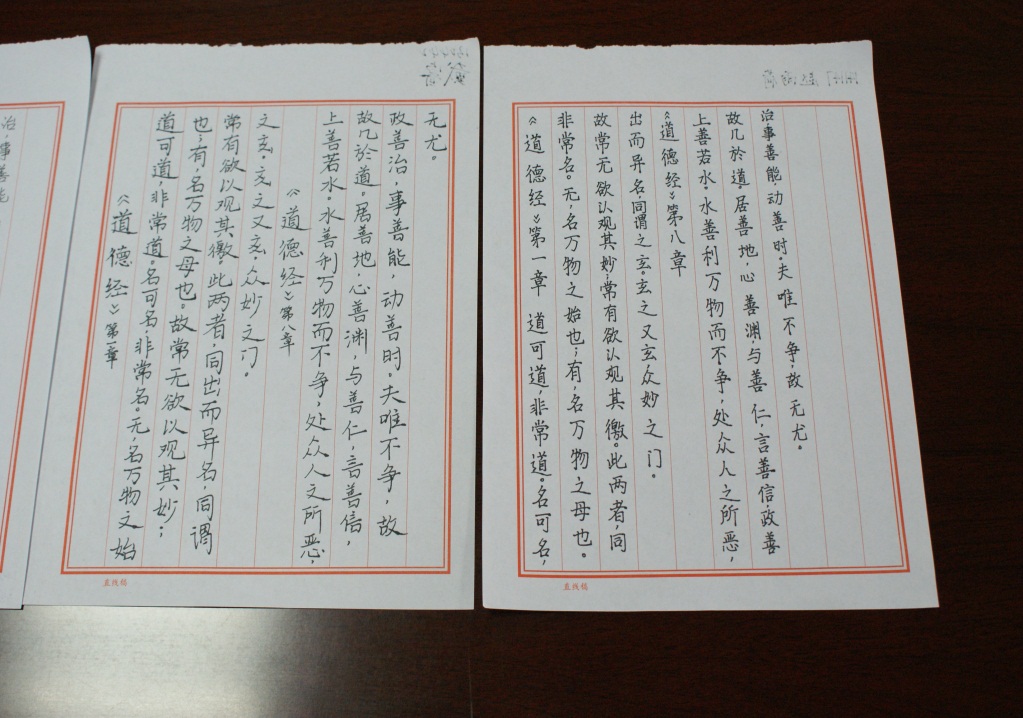 治,事善能
《道德经》第一章
道可道,非常道。名可名,非常名。无,名万物之始
也;有,名万物之母也。故常无欲以观其妙;
常有欲以观其徼。此两者,同出而异名,同谓
之玄。玄之又玄,众妙之门。
《道德经》第八章
上善若水。水善利万物而不争,处众人之所恶,
故几於道。居善地,心善渊,与善仁,言善信,
政善治,事善能,动善时。夫唯不争,故
无尤。
直线稿
《道德经》第一章 道可道,非常道。名可名,
非常名。无,名万物之始也;有,名万物之母也。
故常无欲以观其妙;常有欲以观其徼。此两者,同
出而异名,同谓之玄。玄之又玄众妙之门。
《道德经》第八章
上善若水。水善利万物而不争,处众人之所恶,
故几於道。居善地,心善渊,与善仁,言善信,政善
治,事善能,动善时。夫唯不争,故无尤。
直线稿